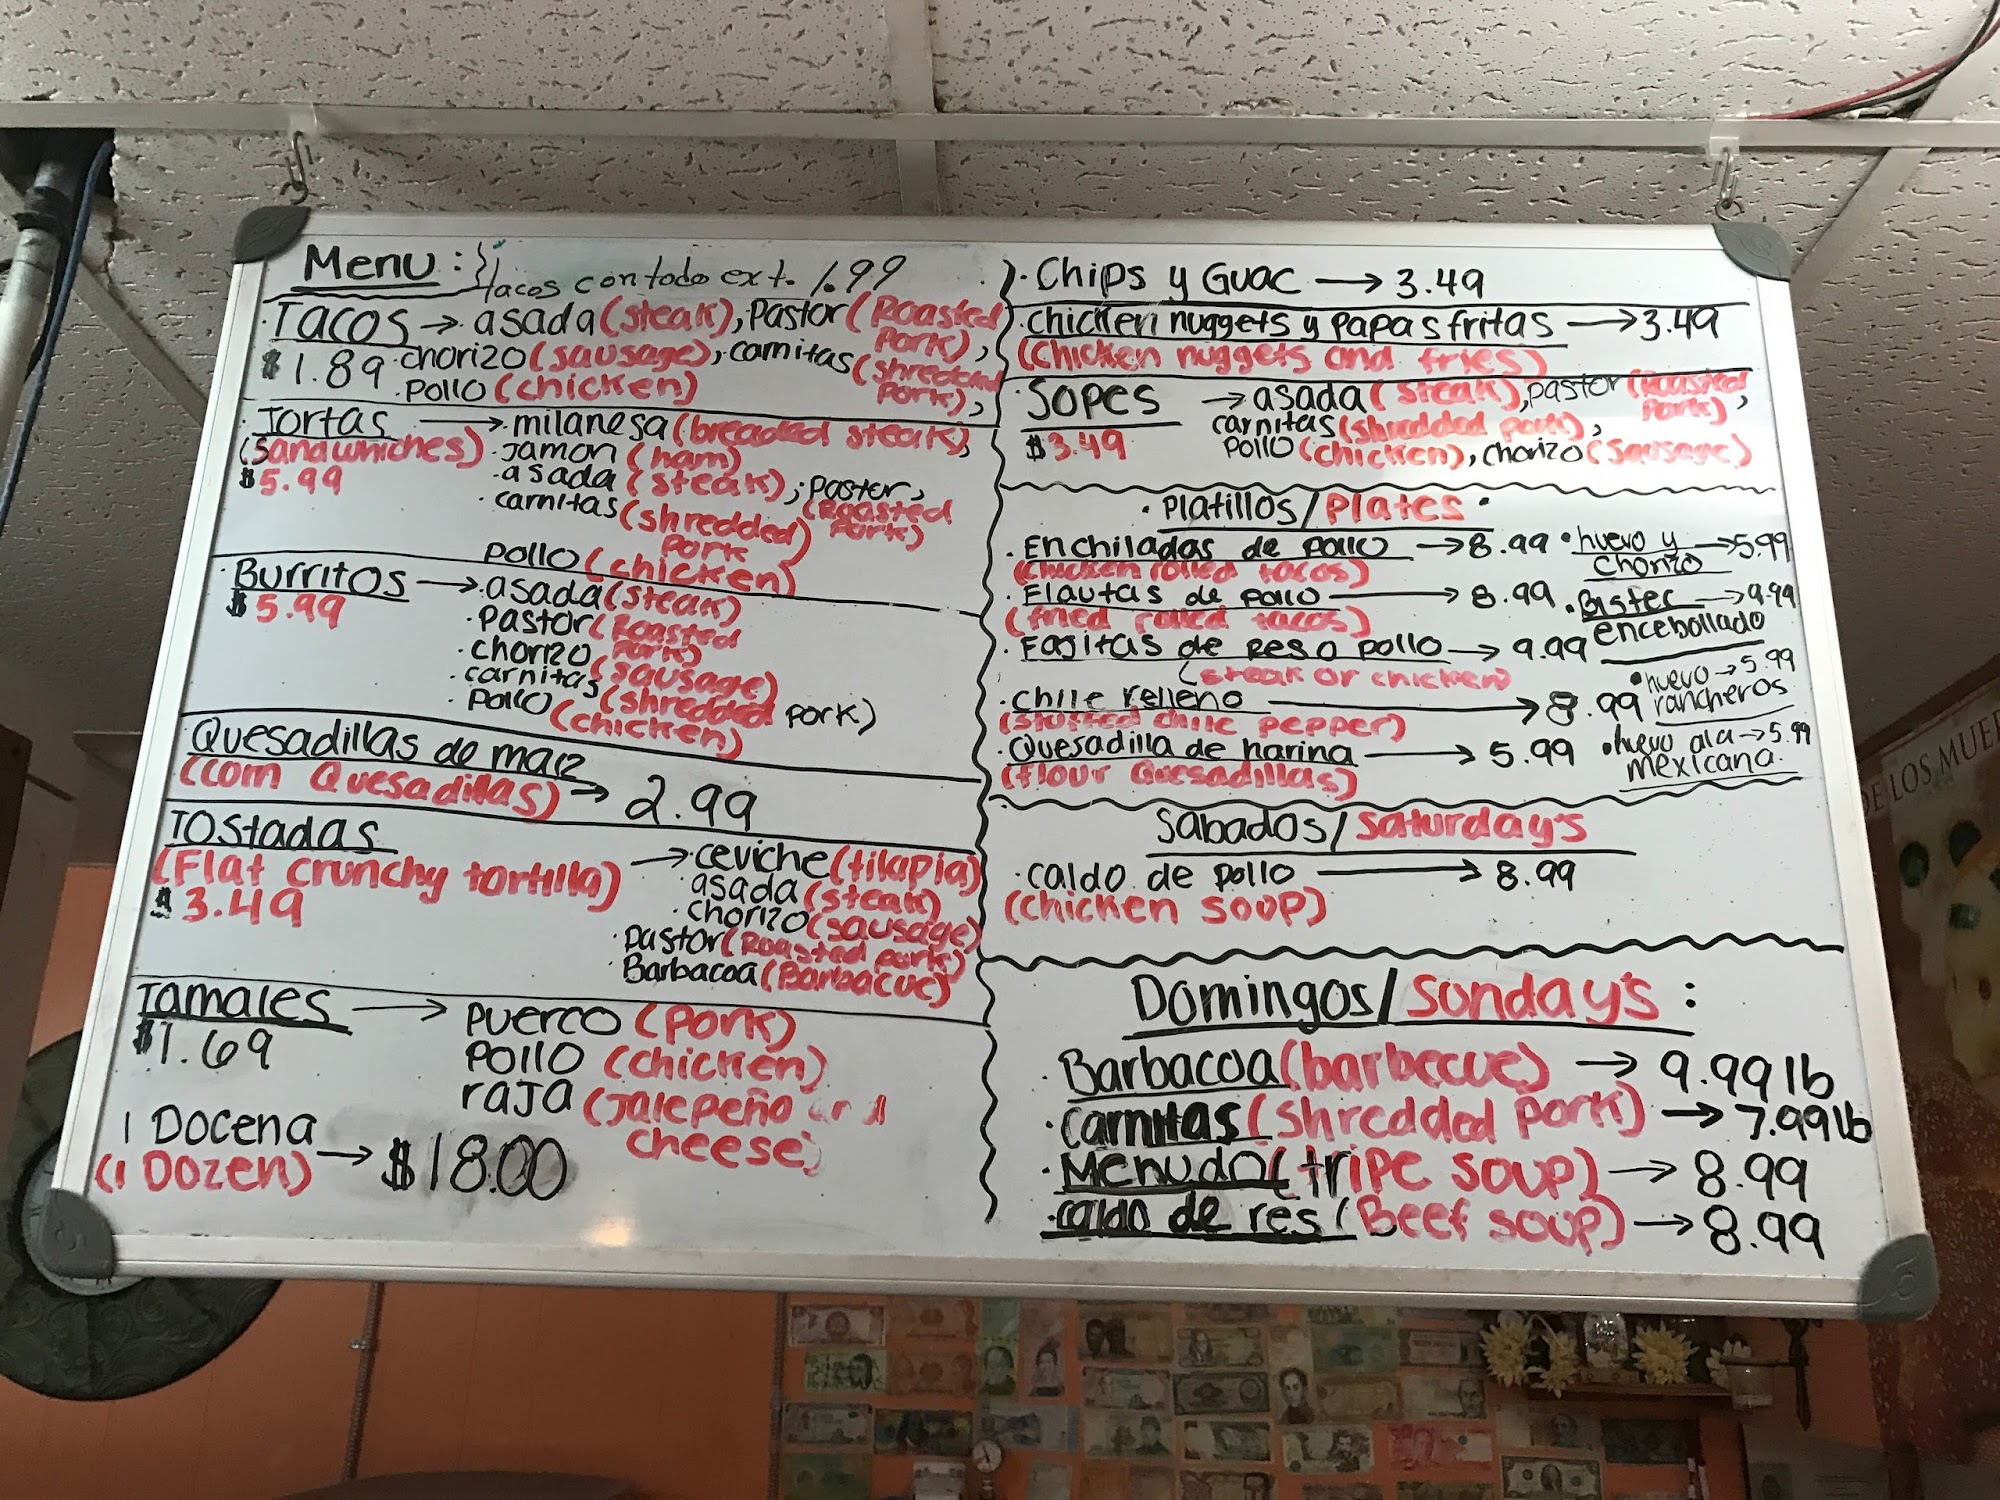 Menu : tacos con todo ext. 1.99
Tacos → asada (steak), Pastor (Roasted Pork),
$1.89 · chorizo (sausage), · carnitas (shredded Pork),
· pollo (chicken)
Tortas → milanesa (breaded steak),
(Sandwhiches) · Jamon (ham)
$5.99 · asada (steak), · Pastor, (Roasted Pork)
· carnitas (shredded Pork)
pollo (chicken)
· Burritos → · asada (steak)
$5.99 · Pastor (Roasted Pork)
· chorizo (sausage)
· carnitas (shredded pork)
· pollo (chicken)
Quesadillas de maiz
(corn Quesadillas) → 2.99
Tostadas
(Flat crunchy tortilla) → · ceviche (tilapia)
$3.49 asada (steak)
· chorizo (sausage)
· Pastor (Roasted pork)
· Barbacoa (Barbacue)
Tamales → puerco (pork)
$1.69 pollo (chicken)
raja (Jalepeño and cheese)
1 Docena
(1 Dozen) → $18.00
· Chips y Guac → 3.49
· chicken nuggets y papas fritas → 3.49
(chicken nuggets and fries)
· Sopes → asada (steak), pastor (Roasted Pork),
$3.49 carnitas (shredded pork),
pollo (chicken), chorizo (sausage)
· Platillos/Plates ·
· Enchiladas de pollo → 8.99
(chicken rolled tacos)
· Flautas de pollo → 8.99
(fried rolled tacos)
· Fajitas de res o pollo → 9.99
(steak or chicken)
· chile relleno → 8.99
(stuffed chile pepper)
· Quesadilla de harina → 5.99
(flour Quesadillas)
· huevo y → 5.99
chorizo
· Bistec → 9.99
encebollado
· huevo → 5.99
rancheros
· huevo ala → 5.99
mexicana.
Sabados/Saturday's
· caldo de pollo → 8.99
(chicken soup)
Domingos/Sunday's :
· Barbacoa (barbecue) → 9.99 lb
· carnitas (shredded pork) → 7.99 lb
· Menudo (tripe soup) → 8.99
· caldo de res (Beef soup) → 8.99
DE LOS MUER